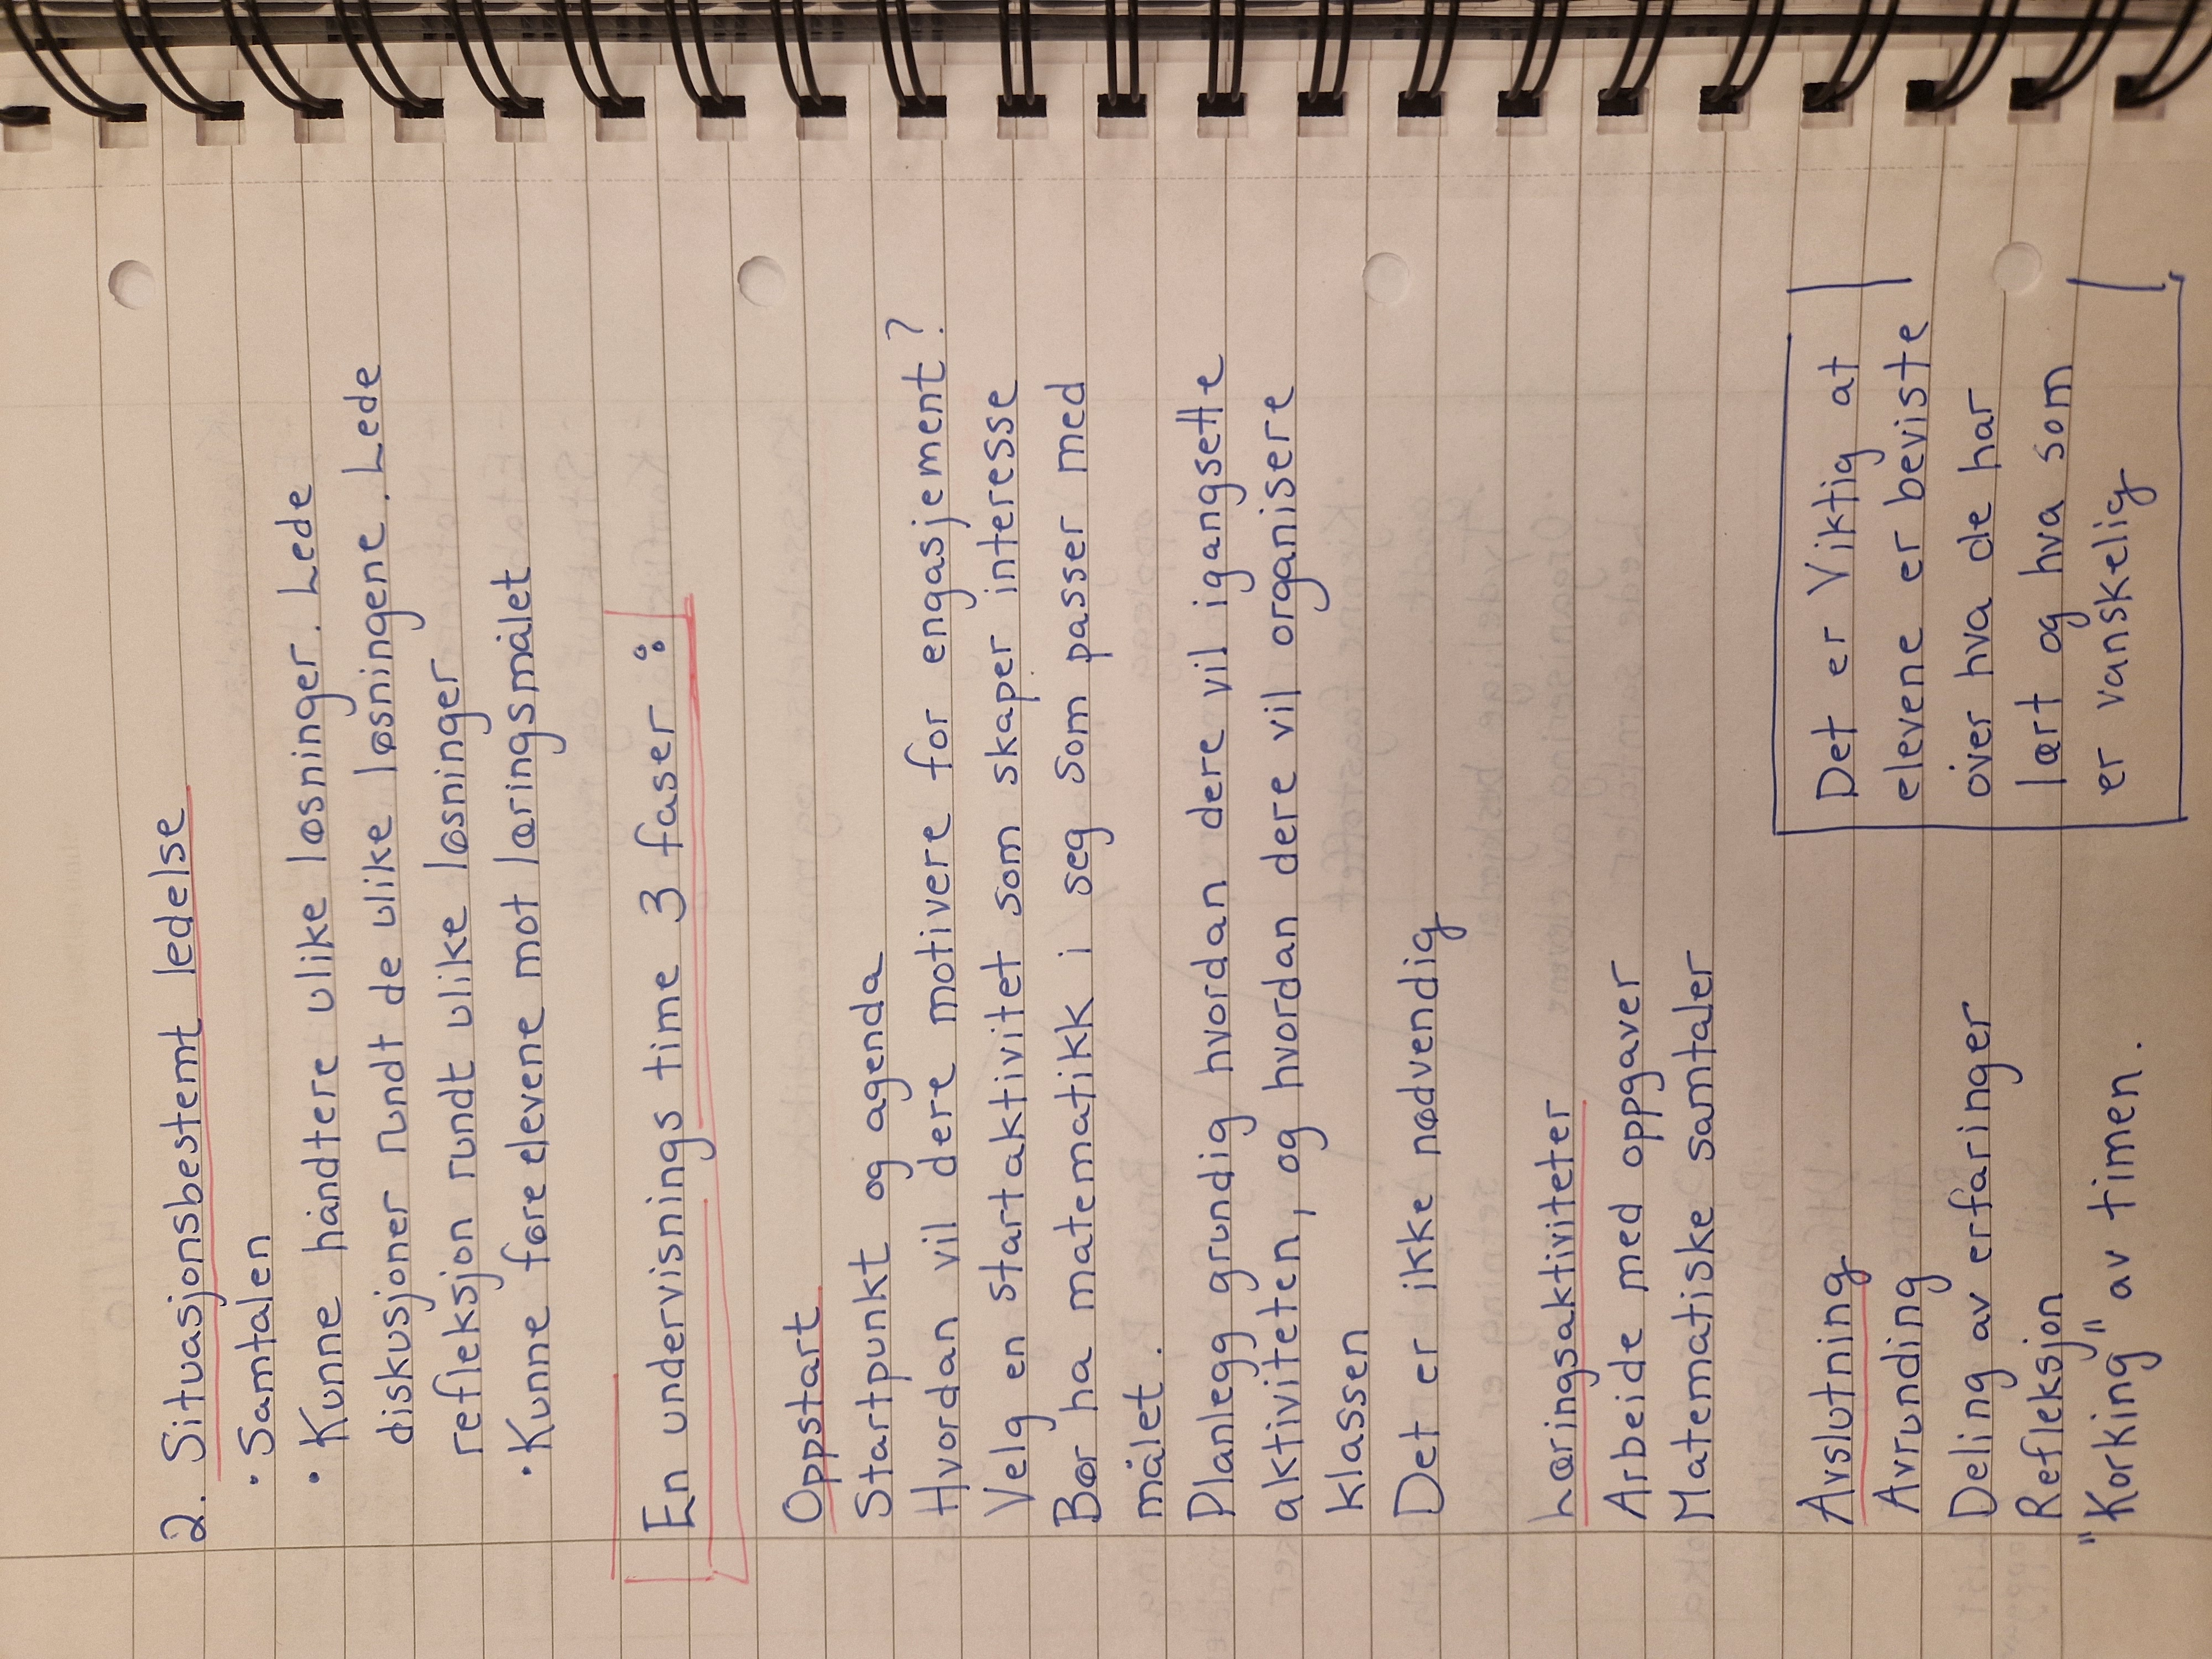 2. Situasjonsbestemt ledelse
· Samtalen
· Kunne håndtere ulike løsninger. Lede
diskusjoner rundt de ulike løsningene. Lede
refleksjon rundt ulike løsninger
· Kunne føre elevene mot læringsmålet
En undervisnings time 3 faser :
Oppstart
Startpunkt og agenda
Hvordan vil dere motivere for engasjement?
Velg en startaktivitet som skaper interesse
Bør ha matematikk i seg som passer med
målet.
Planlegg grundig hvordan dere vil igangsette
aktiviteten, og hvordan dere vil organisere
klassen
Det er ikke nødvendig
Læringsaktiviteter
Arbeide med oppgaver
Matematiske samtaler
Avslutning
Avrunding
Deling av erfaringer
Refleksjon
"Korking" av timen.
Det er Viktig at
elevene er beviste
over hva de har
lært og hva som
er vanskelig